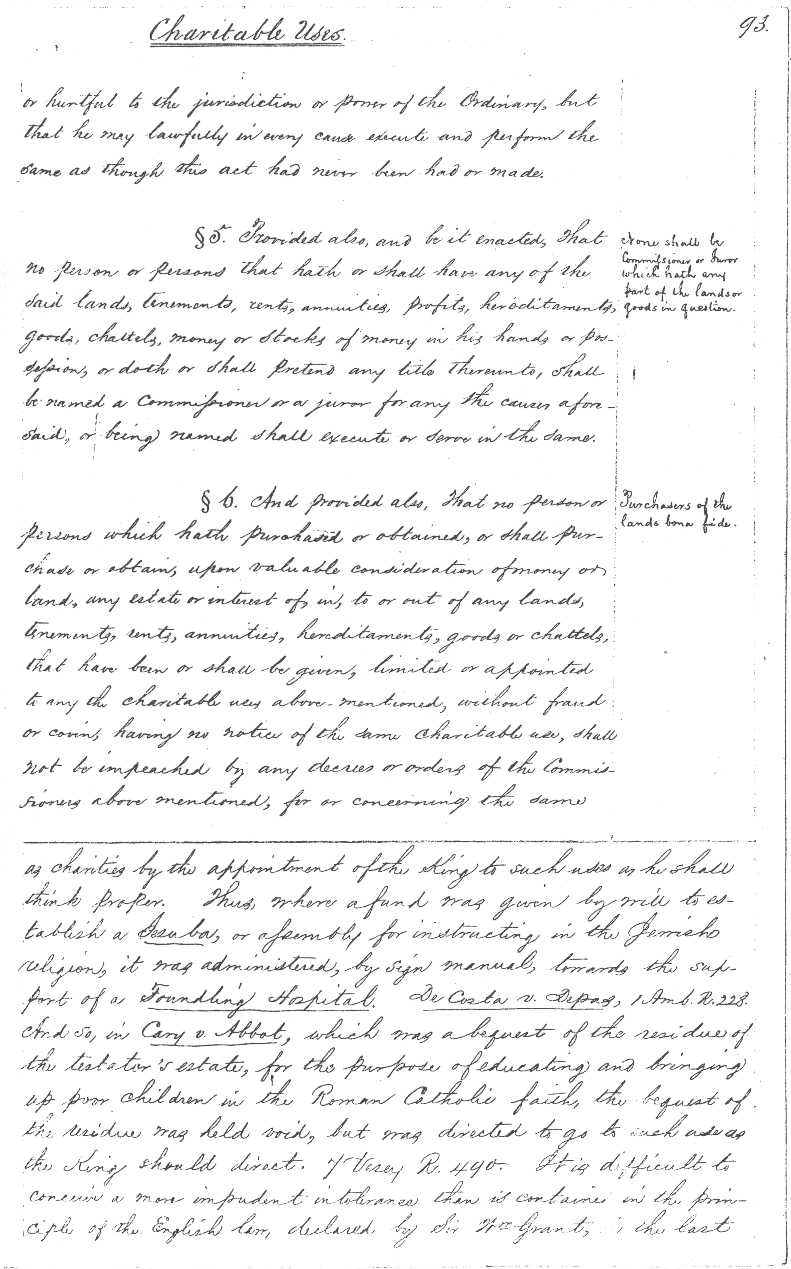 Charitable Uses.
93.
or hurtful to the jurisdiction or power of the Ordinary, but
that he may lawfully in every cause execute and perform the
same as though this act had never been had or made.
§5. Provided also, and be it enacted, That
no person or persons that hath or shall have any of the
said lands, tenements, rents, annuities, profits, hereditaments,
goods, chattels, money or stocks of money in his hands or pos-
session, or doth or shall pretend any title thereunto, shall
be named a Commissioner or a juror for any the causes afore-
said, or being named shall execute or serve in the same.
None shall be
Commissioner or Juror
which hath any
part of the lands or
goods in question.
§6. And provided also, That no person or
persons which hath purchased or obtained, or shall pur-
chase or obtain, upon valuable consideration of money or
land, any estate or interest of, in, to or out of any lands,
tenements, rents, annuities, hereditaments, goods or chattels,
that have been or shall be given, limited or appointed
to any the charitable uses above-mentioned, without fraud
or covin, having no notice of the same charitable use, shall
not be impeached by any decrees or orders of the Commis-
sioners above mentioned, for or concerning the same
Purchasers of the
lands bona fide.
as charities by the appointment of the King to such uses as he shall
think proper. Thus, where a fund was given by will to es-
tablish a Jesuba, or assembly for instructing in the Jewish
religion, it was administered, by sign manual, towards the sup-
port of a Foundling Hospital. De Costa v. Depas, 1 Amb. R. 228.
And so, in Cary v. Abbot, which was a bequest of the residue of
the testator's estate, for the purpose of educating and bringing
up poor children in the Roman Catholic faith, the bequest of
the residue was held void, but was directed to go to such use as
the King should direct. 7 Vesey R. 490. It is difficult to
conceive a more impudent intolerance than is contained in the prin-
ciple of the English law, declared by Sir Wm Grant, in the last